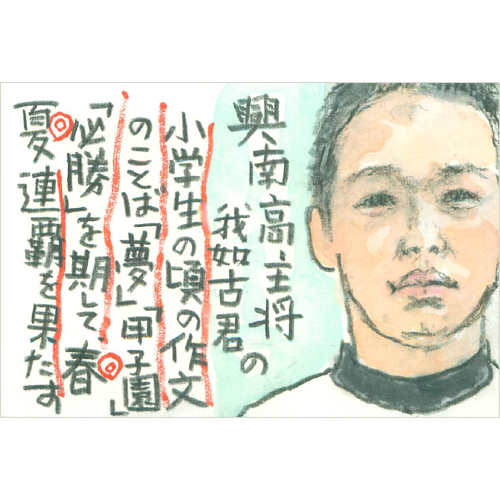 興南高主将
我如古君の
小学生の頃の作文
のことば「夢」「甲子園」
「必勝」を期して、春
夏連覇を果たす